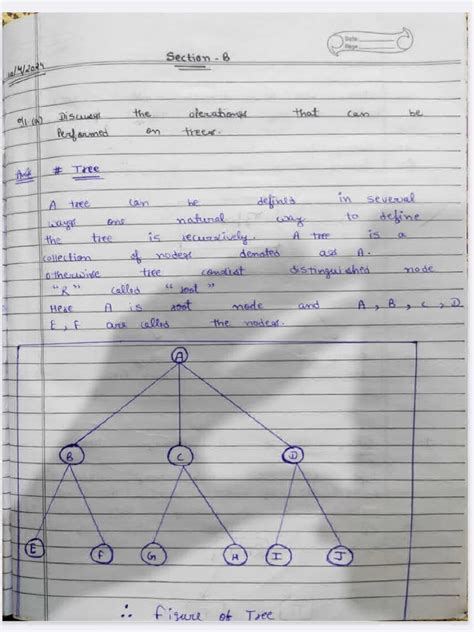 Date
Page
Section - B
10/4/2024
Q1 (A) Discuss the operations that can be
Performed on trees.
Ans # Tree
A tree can be defined in several
ways one natural way to define
the tree is recursively. A tree is a
collection of nodes denoted as A.
otherwise tree consist distinguished node
"R" called "root"
Here A is root node and A, B, C, D
E, F are called the nodes.
A
B C D
E F G H I J
∴ Figure of Tree